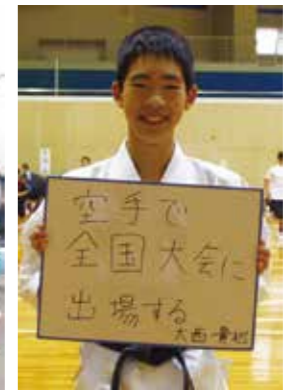 空手で
全国大会に
出場する
大西